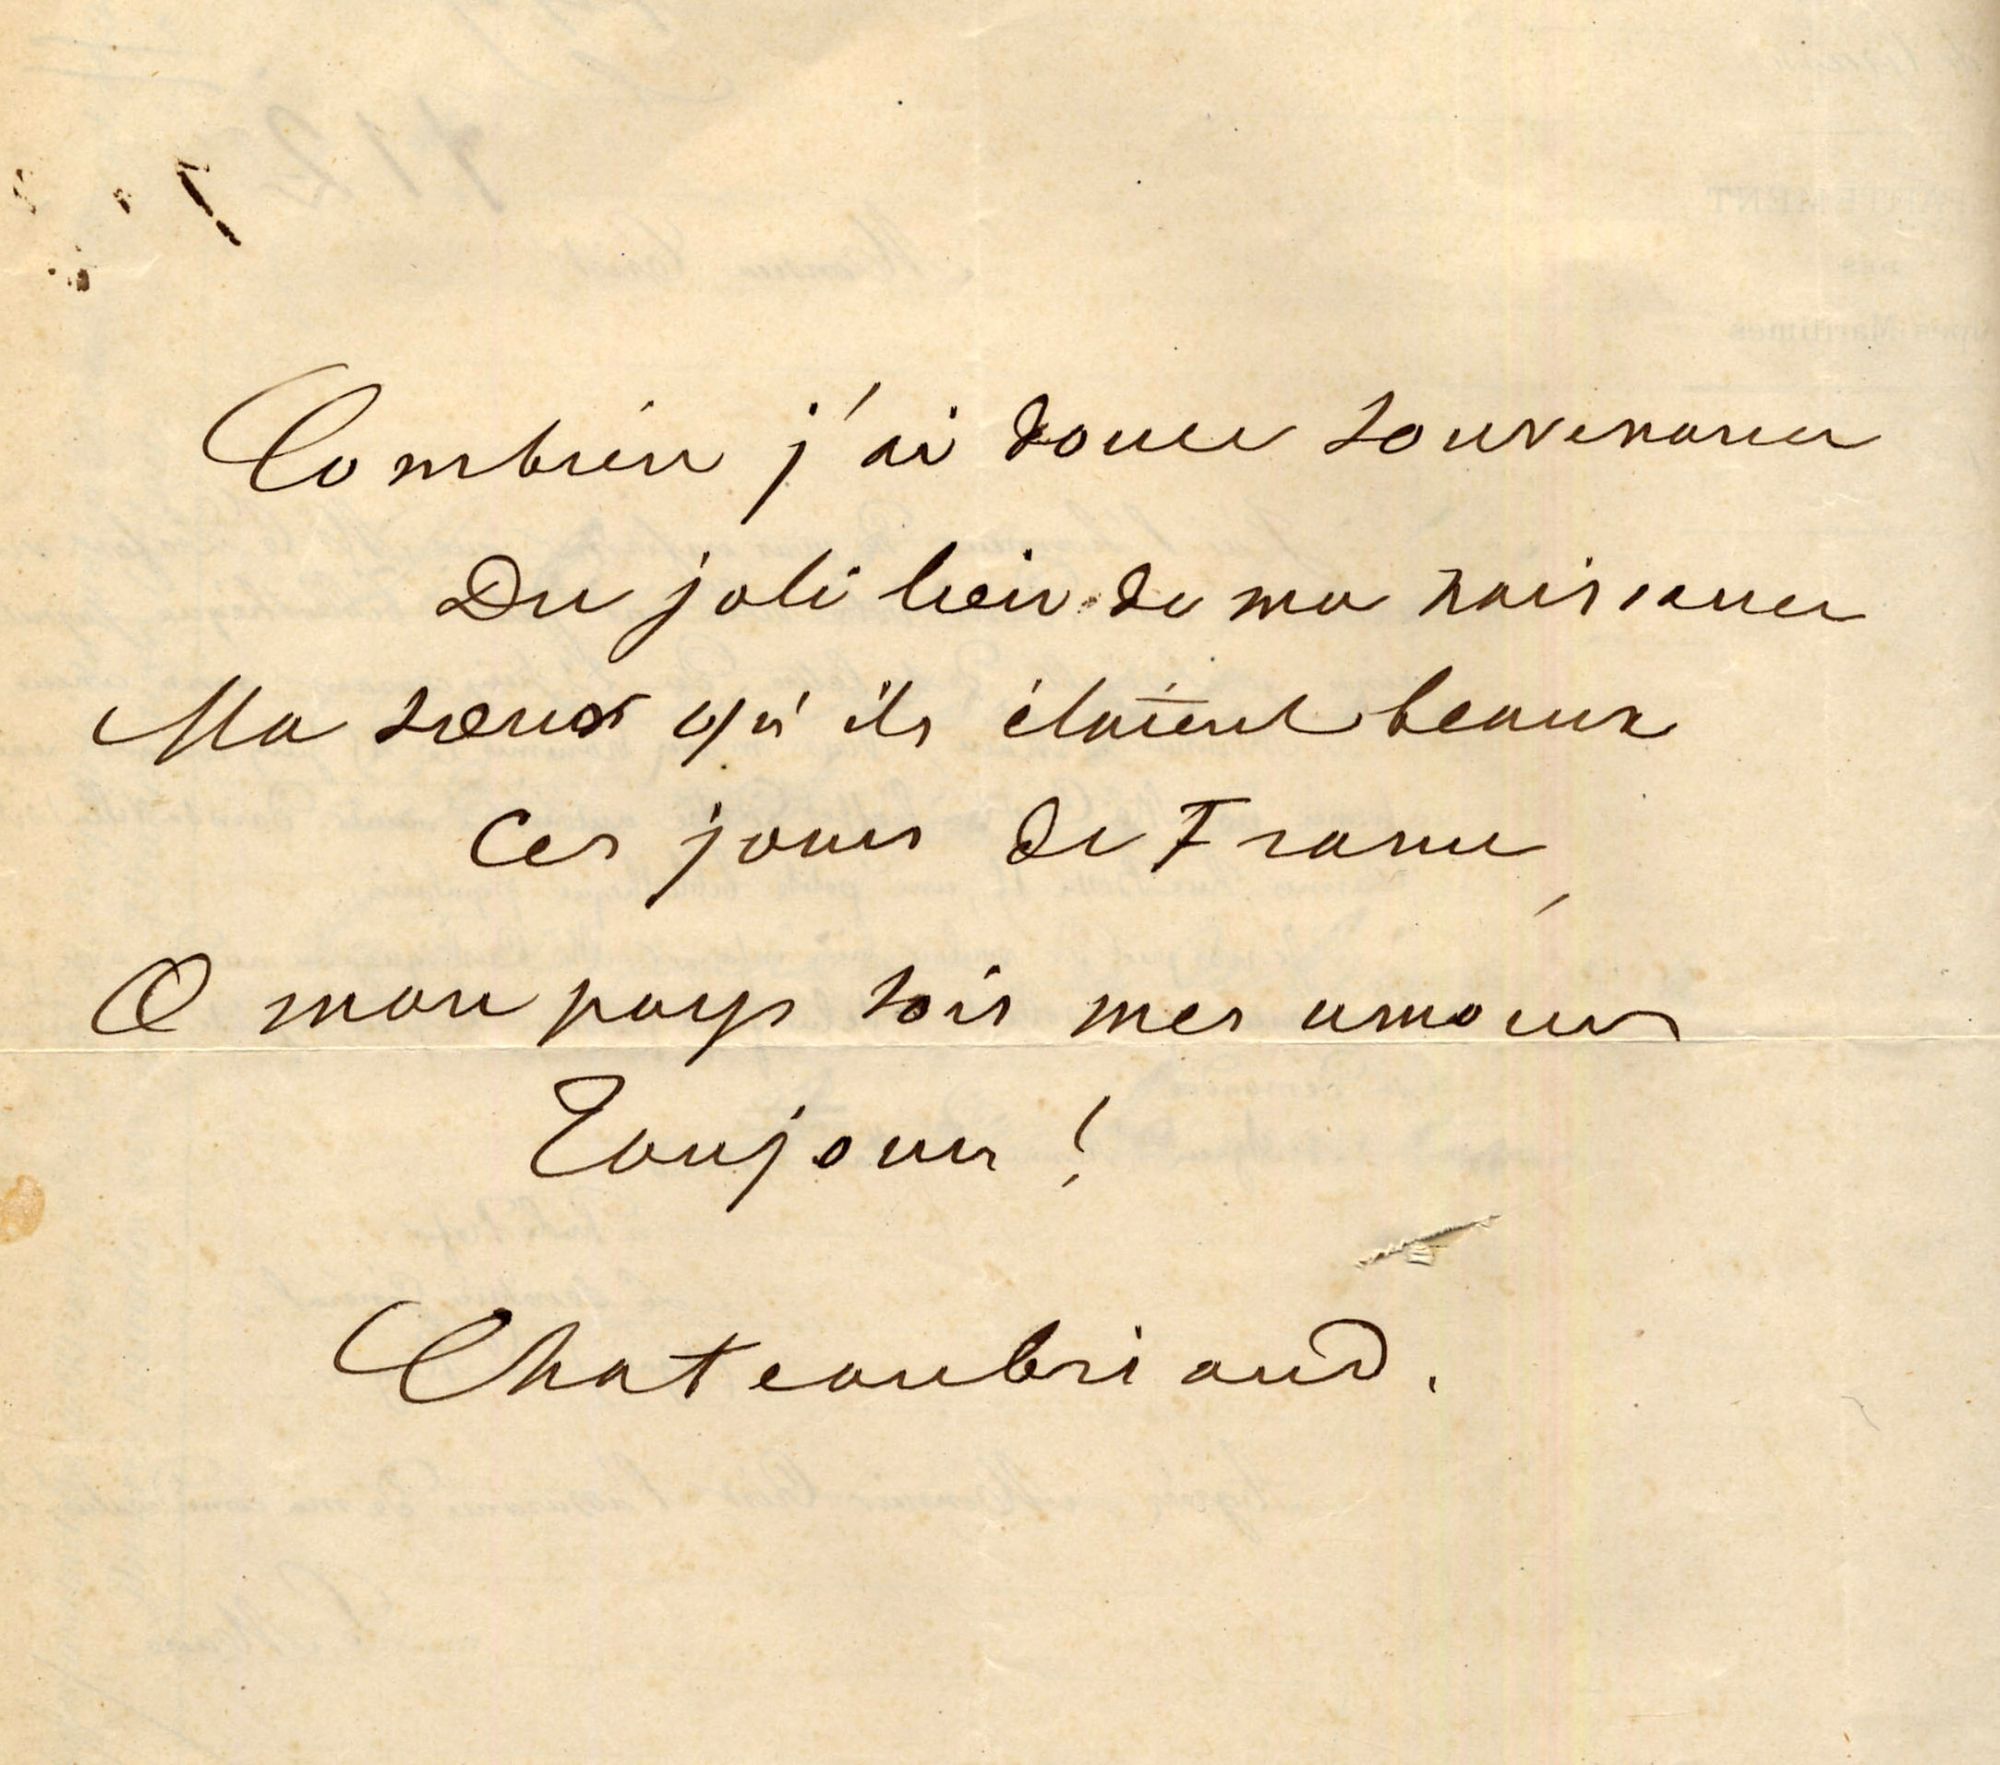 Combien j'ai douce souvenance
Du joli lieu de ma naissance
Ma sœur qu'ils étaient beaux
Ces jours de France,
O mon pays sois mes amours
Toujours !
Chateaubriand.